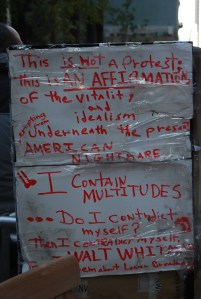 This is NOT a PROTEST;
this is AN AFFIRMATION
of the VITALITY
and
idealism
erupting from
Underneath the present
AMERICAN
NIGHTMARE
I CONTAIN
MULTITUDES
... Do I contradict
myself?
Then I contradict myself.
WALT WHITMAN